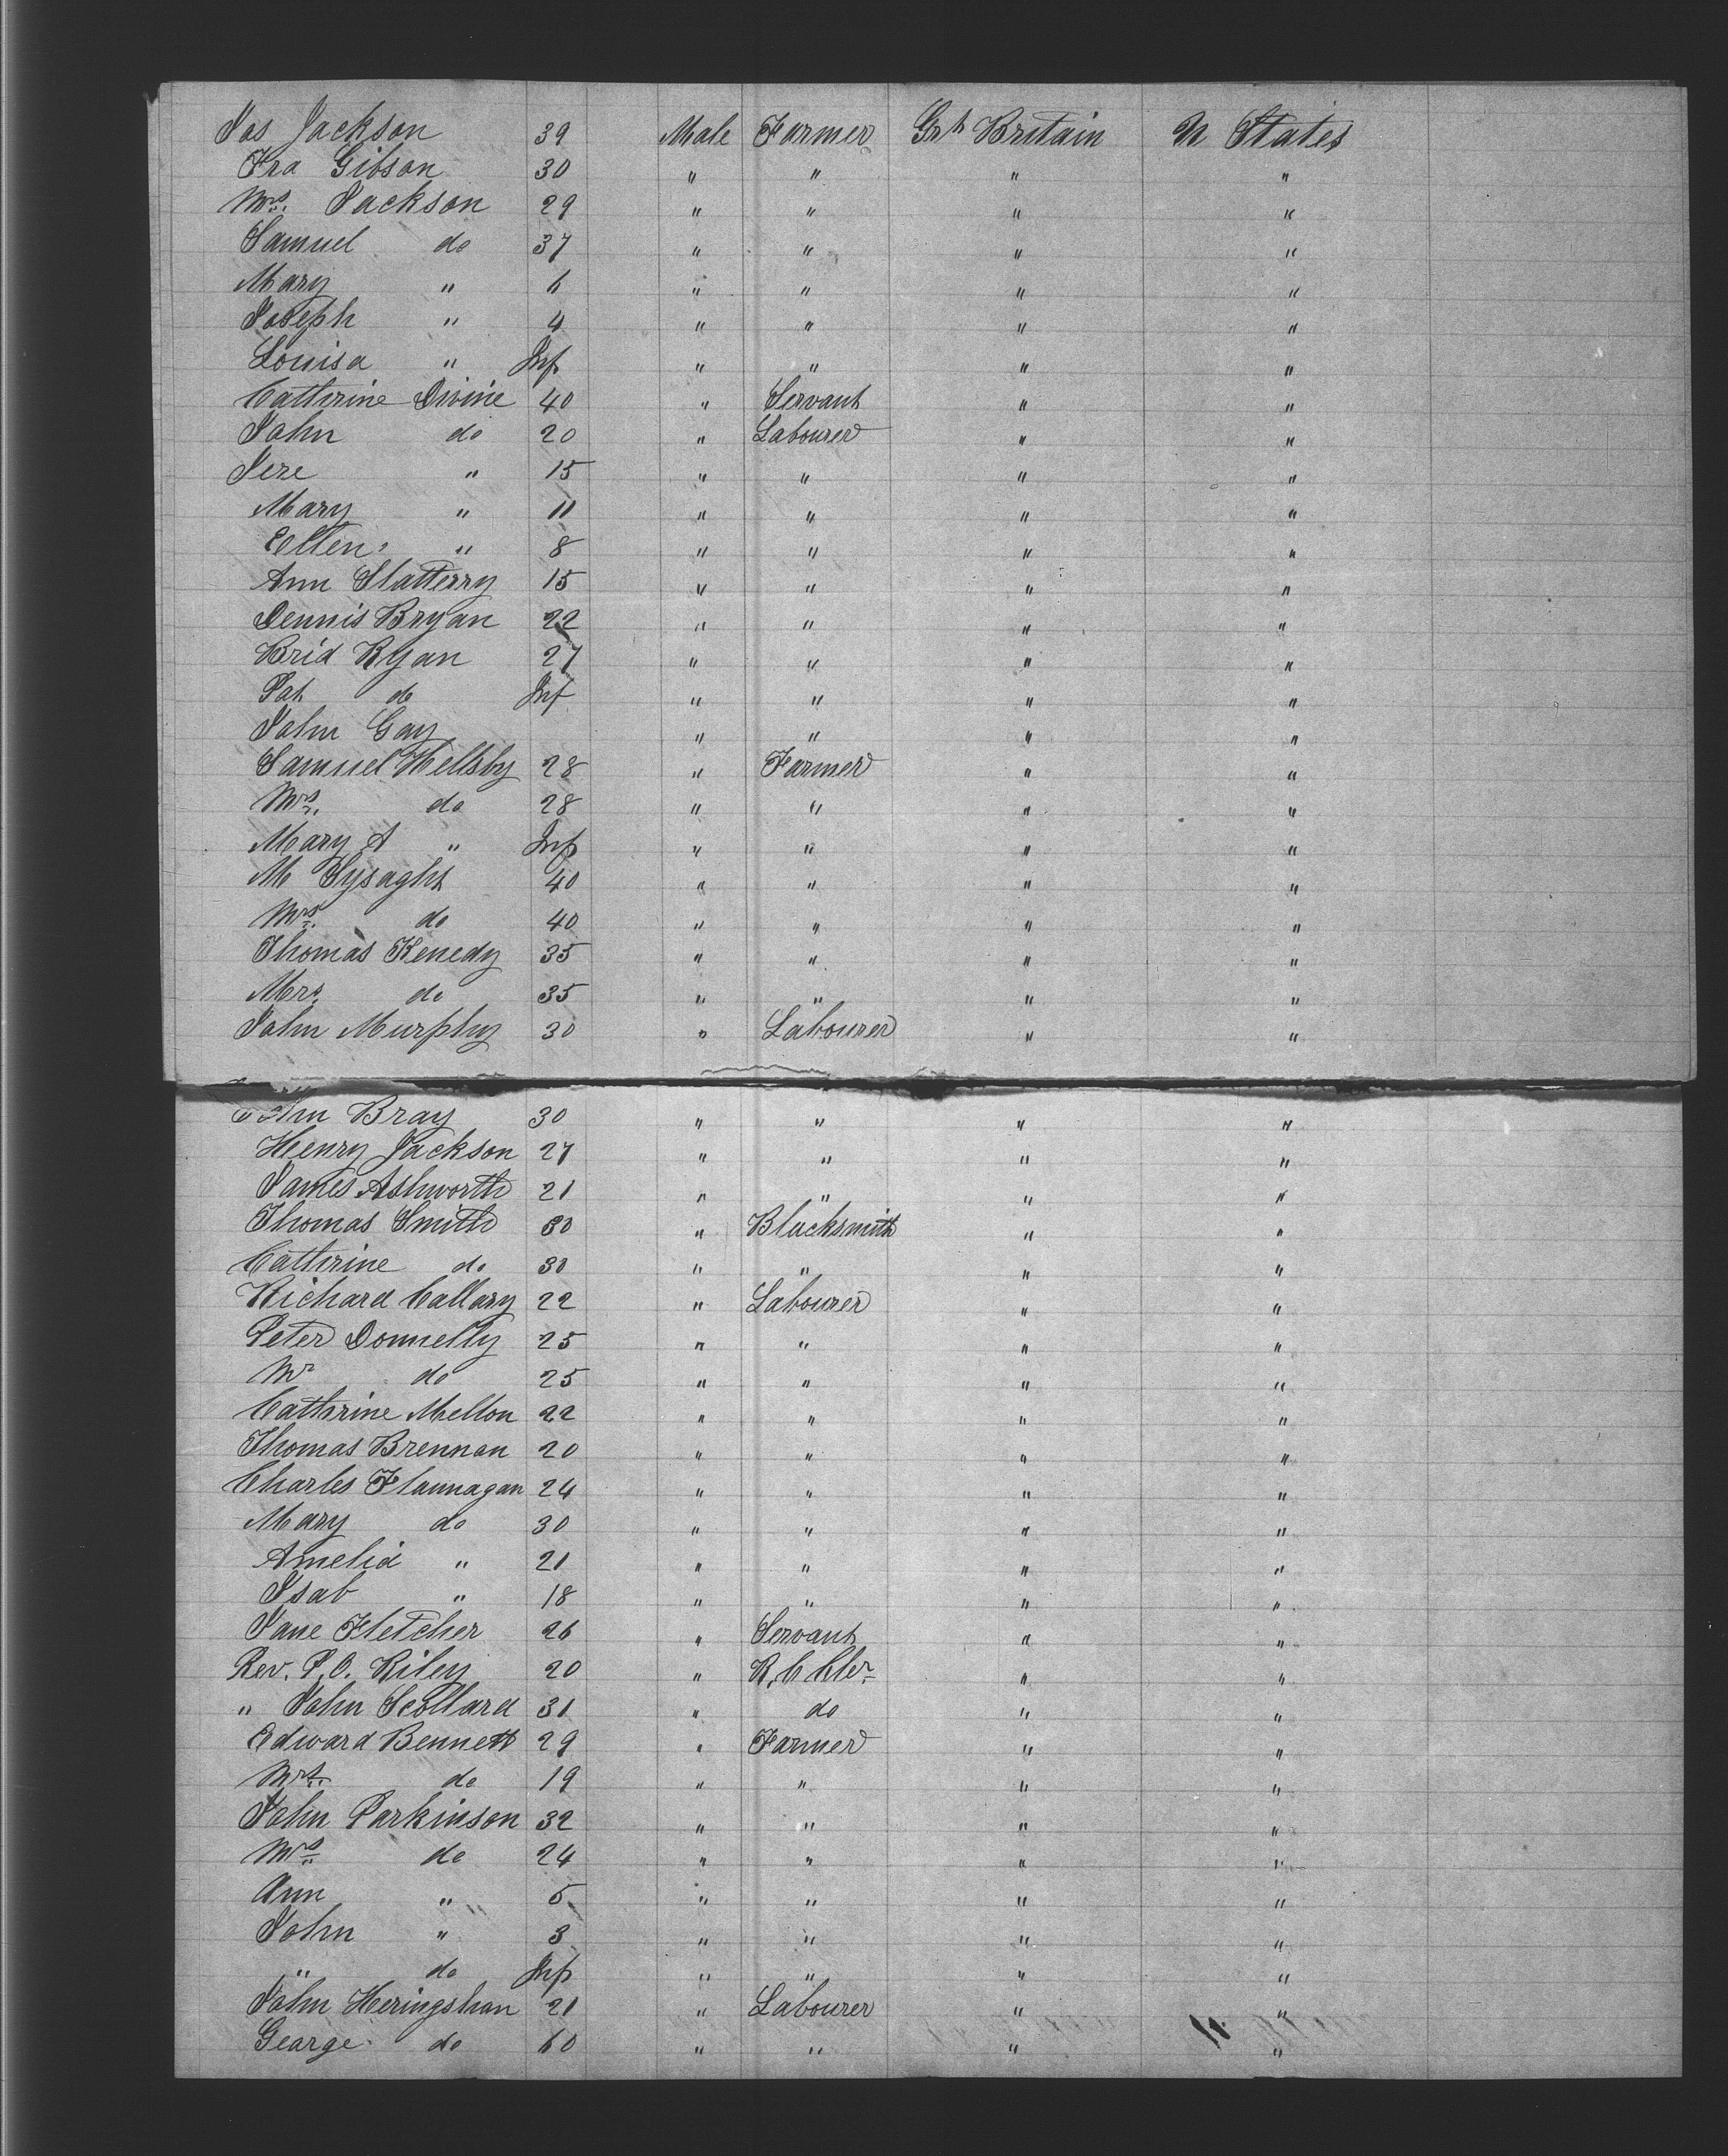 Jos Jackson 39 Male Farmer Grt Britain U States
Fra Gibson 30 " " " "
Mrs. Jackson 29 " " " "
Samuel do 37 " " " "
Mary " 6 " " " "
Joseph " 4 " " " "
Louisa " Inf " " " "
Catherine Divine 40 " Servant " "
John do 20 " Labourer " "
Jere " 15 " " " "
Mary " 11 " " " "
Ellen " 8 " " " "
Ann Slatterry 15 " " " "
Dennis Bryan 22 " " " "
Brid Ryan 27 " " " "
Pat do Inf " " " "
John Gay " " " "
Samuel Hellsby 28 " Farmer " "
Mrs. do 28 " " " "
Mary A " Inf " " " "
M Lysaght 40 " " " "
Mrs. do 40 " " " "
Thomas Kenedy 35 " " " "
Mrs. do 35 " " " "
John Murphy 30 " Labourer " "
John Bray 30 " " " "
Henry Jackson 27 " " " "
James Ashworth 21 " " " "
Thomas Smith 30 " Blacksmith " "
Catherine do 30 " " " "
Richard Callary 22 " Labourer " "
Peter Donnelly 25 " " " "
Mr do 25 " " " "
Cathrine Mellon 22 " " " "
Thomas Brennan 20 " " " "
Charles Flannagan 24 " " " "
Mary do 30 " " " "
Amelia " 21 " " " "
Isab " 18 " " " "
Jane Fletcher 26 " Servant " "
Rev. P. O. Riley 20 " R. C Cler " "
" John Scollard 31 " do " "
Edward Bennett 29 " Farmer " "
Mrs. do 19 " " " "
John Parkinson 32 " " " "
Mrs do 24 " " " "
Ann " 5 " " " "
John " 3 " " " "
" do Inf " " " "
John Heringshan 21 " Labourer " "
George do 60 " " " "